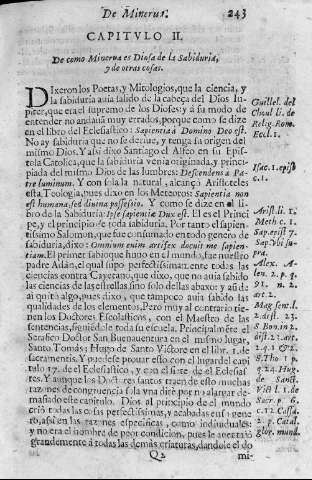 De Minerua. 243
CAPITVLO II.
De como Minerua es Diosa de la Sabiduria,
y de otras cosas.
DIxeron los Poetas, y Mitologios, que la ciencia, y
la sabiduria auia salido de la cabeça del Dios Iu
piter, que era el supremo de los Dioses: y a su modo de
entender no andauã muy errados, porque como se dize
en el libro del Eclesiastico: Sapientia à Domino Deo est.
No ay sabiduria que no se deriue, y tenga su origen del
mismo Dios. Y asi dixo Santiago el Alfeo en su Epis-
tola Catolica, que la sabiduria venia originada, y princi-
piada del mismo Dios de las lumbres: Descendens à Pa-
tre luminum. Y con sola la natural, alcançò Aristoteles
esta Teologia, pues dixo en los Meteoros: Sapientia non
est humana, sed diuina possessio. Y como se dize en el li
bro de la Sabiduria: Ipse sapientiæ Dux est. El es el Princi
pe, y el principio de toda sabiduria. Por tanto el sapien-
tissimo Salomon, que fue consumado en todo genero de
sabiduria, dixo: Omnium enim artifex docuit me sapien-
tiam. El primer sabio que huuo en el mundo, fue nuestro
padre Adán, el qual supo perfectissimamente todas las
ciencias
ciencias de las estrellas sino solo de llas abaxo y aũ de
ai quitò algo, pues dixo, que tampoco auia sabido las
qualidades de los elementos. Pero muy al contrario tie-
nen los Doctores Escolasticos, con el Maestro de las
sentencias, siguiẽdole toda su escuela. Principalmẽte el
Serafico Doctor San Buenauentura en el mismo lugar,
Santo Tomàs; Hugo de Santo Victore en el libr. 1. de
sacramentis. Y puedese prouar esto con el lugar del capi
tulo 17. del Eclesiastico, y con el siete del Eclesias-
tes. Y aunque los Doctores santos traen de esto muchas
razones de congruencia sola vna dirè por no alargar de-
masiado este capitulo. Dios al principio de el mundo
criò todas las cosas perfectissimas, y acabadas en su gene
ro, asi en las razones especificas, como indiuiduales:
y no era el hombre de peor condicion, pues le auentajò
grandemente à todas las demas criaturas, dandole el do
Q2 mi-
Guillel. del
Choul li. de
Relig. Rom.
Eccl. 1.
Iac. 1. epist
c. 1.
Arist. li. 1.
Meth. c. 1.
Sap. epist 7
Sap. vbi su-
pra.
Alex. A-
len. 2. p. q.
91. n. 2.
art. 2.
Mag. sent. l.
2. dist. 23.
S. Bon. in 2.
dist. 23. art.
S. Tho 1 p.
q. 24. Hug.
de Sanct.
Vict l. 1. de
Sacr. p. 6.
c. 12 Cassa.
2. p. Catal.
glor. mund.